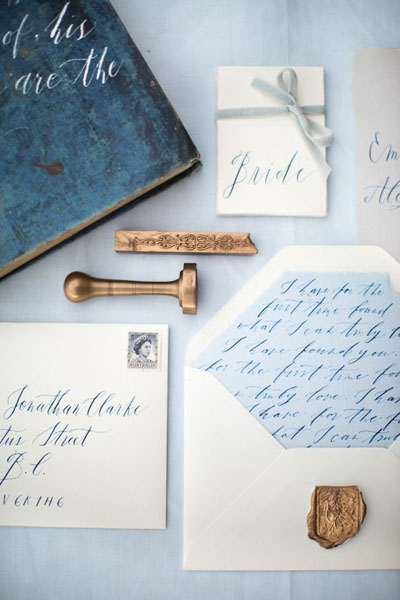 of his
are the
Bride
Em
I have for the
first time found
what I can truly lo
I have found you.
for the first time fo
truly love. I have
I have for the f
what I can truly
AUSTRALIA
Jonathan Clarke
tus Street
B.C.
V6K1H6